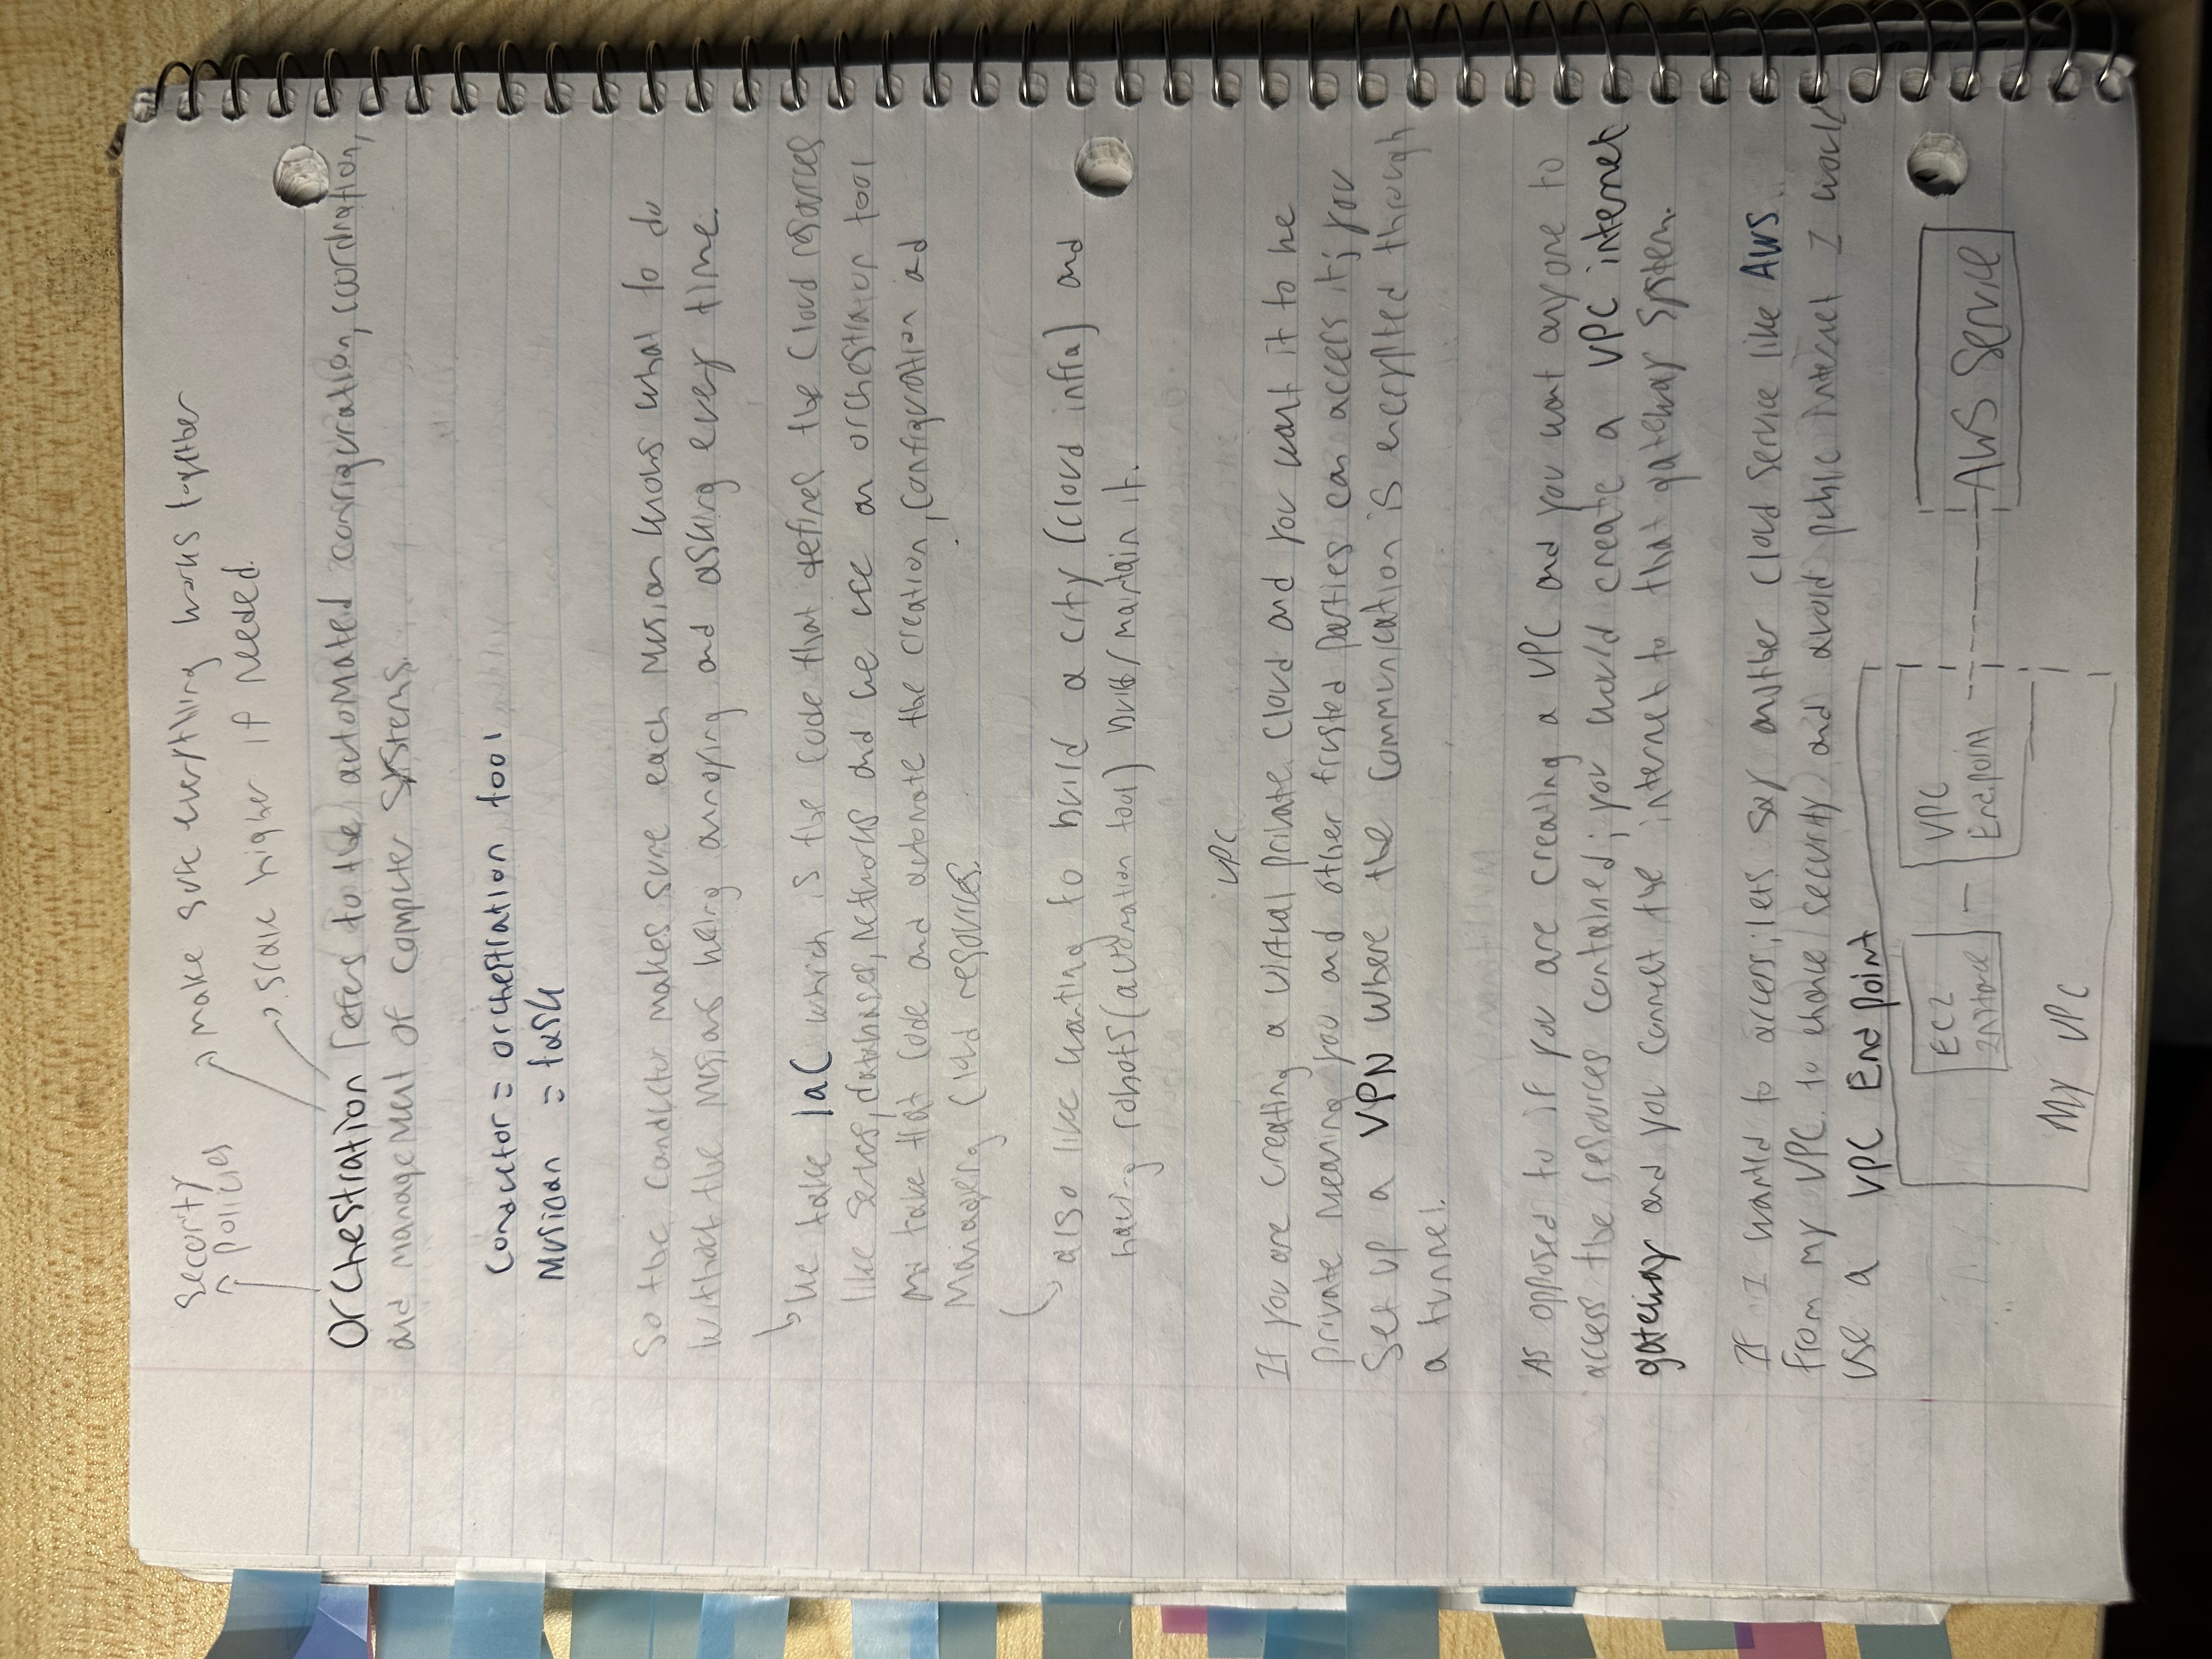 Security
policies
make sure everything works together
scale higher if needed.
Orchestration refers to the automated configuration, coordination,
and management of computer systems.
Conductor = orchestration tool
Musician = task
So the conductor makes sure each musician knows what to do
without the musicians being annoying and asking every time.
We take IaC which is the code that defines the cloud resources
like servers, databases, networks and we use an orchestration tool
and take that code and automate the creation, configuration and
managing cloud resources.
also like wanting to build a city (cloud infra) and
having robots (automation tool) build/maintain it.
VPC
If you are creating a virtual private cloud and you want it to be
private meaning you and other trusted parties can access it; you
set up a VPN where the communication is encrypted through
a tunnel.
As opposed to if you are creating a VPC and you want anyone to
access the resources contained; you would create a VPC internet
gateway and you connect the internet to that gateway system.
If I wanted to access; lets say another cloud service like AWS
from my VPC to enhance security and avoid public internet I would
use a VPC Endpoint
EC2
Instance
VPC
Endpoint
AWS Service
My VPC